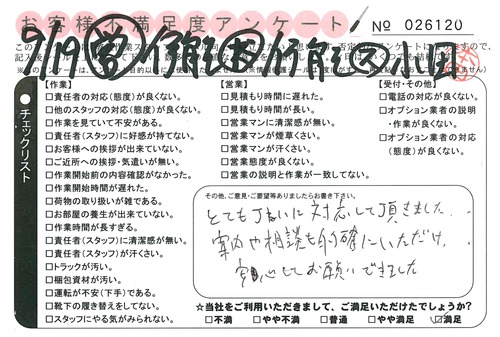 お客様不満足度アンケート
№ 026120
チェックリスト
【作業】
□責任者の対応(態度)が良くない。
□他のスタッフの対応(態度)が良くない。
□作業を見ていて不安がある。
□責任者(スタッフ)に好感が持てない。
□お客様への挨拶が出来ていない。
□ご近所への挨拶・気遣いが無い。
□作業開始前の内容確認がなかった。
□作業開始時間が遅れた。
□荷物の取り扱いが雑である。
□お部屋の養生が出来ていない。
□作業時間が長すぎる。
□責任者(スタッフ)に清潔感が無い。
□責任者(スタッフ)が汗くさい。
□トラックが汚い。
□梱包資材が汚い。
□運転が不安(下手)である。
□靴下の履き替えをしてない。
□スタッフにやる気がみられない。
【営業】
□見積もり時間に遅れた。
□見積もり時間が長い。
□営業マンに清潔感が無い。
□営業マンが煙草くさい。
□営業マンが汗くさい。
□営業態度が良くない。
□営業の説明と作業が一致してない。
【受付・その他】
□電話の対応が良くない。
□オプション業者の説明
・作業が良くない。
□オプション業者の対応
(態度)が良くない。
その他、ご意見・ご要望等ありましたらお書き下さい。
とても丁ねいに対応して頂きました。
案内や相談も的確にいただけ、
安心してお願いできました
★当社をご利用いただきまして、ご満足いただけたでしょうか?
□不満 □やや不満 □普通 □やや満足 ☑満足